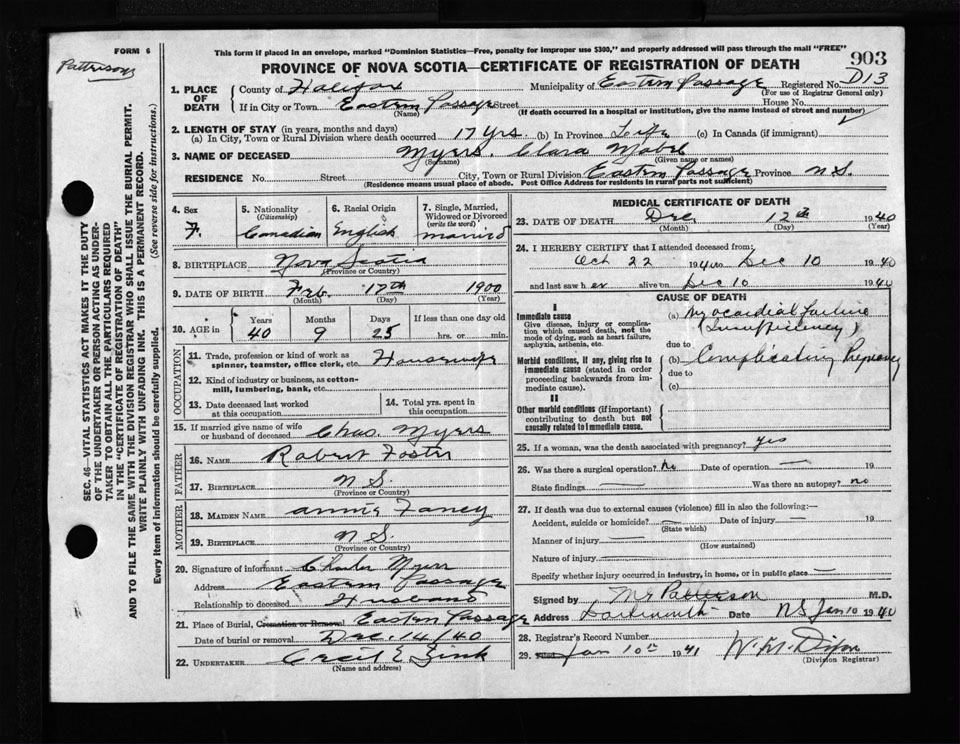 FORM 6
Patterson
This form if placed in an envelope, marked "Dominion Statistics—Free, penalty for improper use $300," and properly addressed will pass through the mail "FREE"
903
PROVINCE OF NOVA SCOTIA—CERTIFICATE OF REGISTRATION OF DEATH
1. PLACE OF DEATH
County of Halifax Municipality of Eastern Passage Registered No. D13
(For use of Registrar General only)
If in City or Town Eastern Passage Street House No.
(Name) (If death occurred in a hospital or institution, give the name instead of street and number)
2. LENGTH OF STAY (in years, months and days)
(a) In City, Town or Rural Division where death occurred 17 yrs. (b) In Province Life (c) In Canada (if immigrant)
3. NAME OF DECEASED Myers, Clara Mabel
(Surname) (Given name or names)
RESIDENCE No. Street City, Town or Rural Division Eastern Passage Province N.S.
(Residence means usual place of abode. Post Office Address for residents in rural parts not sufficient)
SEC. 46—VITAL STATISTICS ACT MAKES IT THE DUTY
OF THE UNDERTAKER OR PERSON ACTING AS UNDER-
TAKER TO OBTAIN ALL THE PARTICULARS REQUIRED
IN THE "CERTIFICATE OF REGISTRATION OF DEATH"
AND TO FILE THE SAME WITH THE DIVISION REGISTRAR WHO SHALL ISSUE THE BURIAL PERMIT.
WRITE PLAINLY WITH UNFADING INK. THIS IS A PERMANENT RECORD.
Every item of information should be carefully supplied. (See reverse side for instructions.)
4. Sex
F.
5. Nationality
(Citizenship)
Canadian
6. Racial Origin
English
7. Single, Married,
Widowed or Divorced
(write the word)
Married
8. BIRTHPLACE Nova Scotia
(Province or Country)
9. DATE OF BIRTH Feb. 17th 1900
(Month) (Day) (Year)
10. AGE in
Years Months Days If less than one day old
40 9 25 hrs. or min.
OCCUPATION
11. Trade, profession or kind of work as
spinner, teamster, office clerk, etc. Housewife
12. Kind of industry or business, as cotton-
mill, lumbering, bank, etc.
13. Date deceased last worked
at this occupation
14. Total yrs. spent in
this occupation
15. If married give name of wife
or husband of deceased Chas. Myers
FATHER
16. Name Robert Foster
17. Birthplace N S
(Province or Country)
MOTHER
18. Maiden Name Annie Faney
19. Birthplace N S.
(Province or Country)
20. Signature of informant Charles Myers
Address Eastern Passage
Relationship to deceased Husband
21. Place of Burial, Cremation or Removal Eastern Passage
Date of burial or removal Dec. 14/40
22. Undertaker Cecil E. Zink
(Name and address)
MEDICAL CERTIFICATE OF DEATH
23. DATE OF DEATH Dec. 12th 1940
(Month) (Day) (Year)
24. I HEREBY CERTIFY that I attended deceased from:
Oct 22 1940 to Dec 10 1940
and last saw her alive on Dec 10 1940
CAUSE OF DEATH
I
Immediate cause
Give disease, injury or complica-
tion which caused death, not the
mode of dying, such as heart failure,
asphyxia, asthenia, etc.
(a) Myocardial failure
(Insufficiency)
due to
Morbid conditions, if any, giving rise to
immediate cause (stated in order
proceeding backwards from im-
mediate cause).
(b) Complicating Pregnancy
due to
(c)
II
Other morbid conditions (if important)
contributing to death but not
causally related to immediate cause.
25. If a woman, was the death associated with pregnancy? yes
26. Was there a surgical operation? no Date of operation — 19
State findings — Was there an autopsy? no
27. If death was due to external causes (violence) fill in also the following:—
Accident, suicide or homicide? — Date of injury — 19
(State which)
Manner of injury —
(How sustained)
Nature of injury —
Specify whether injury occurred in industry, in home, or in public place —
Signed by Patterson M.D.
Address Dartmouth Date N.S Jan 10 1940
28. Registrar's Record Number
29. Filed Jan 10th 1941 W. M. Dixon
(Division Registrar)